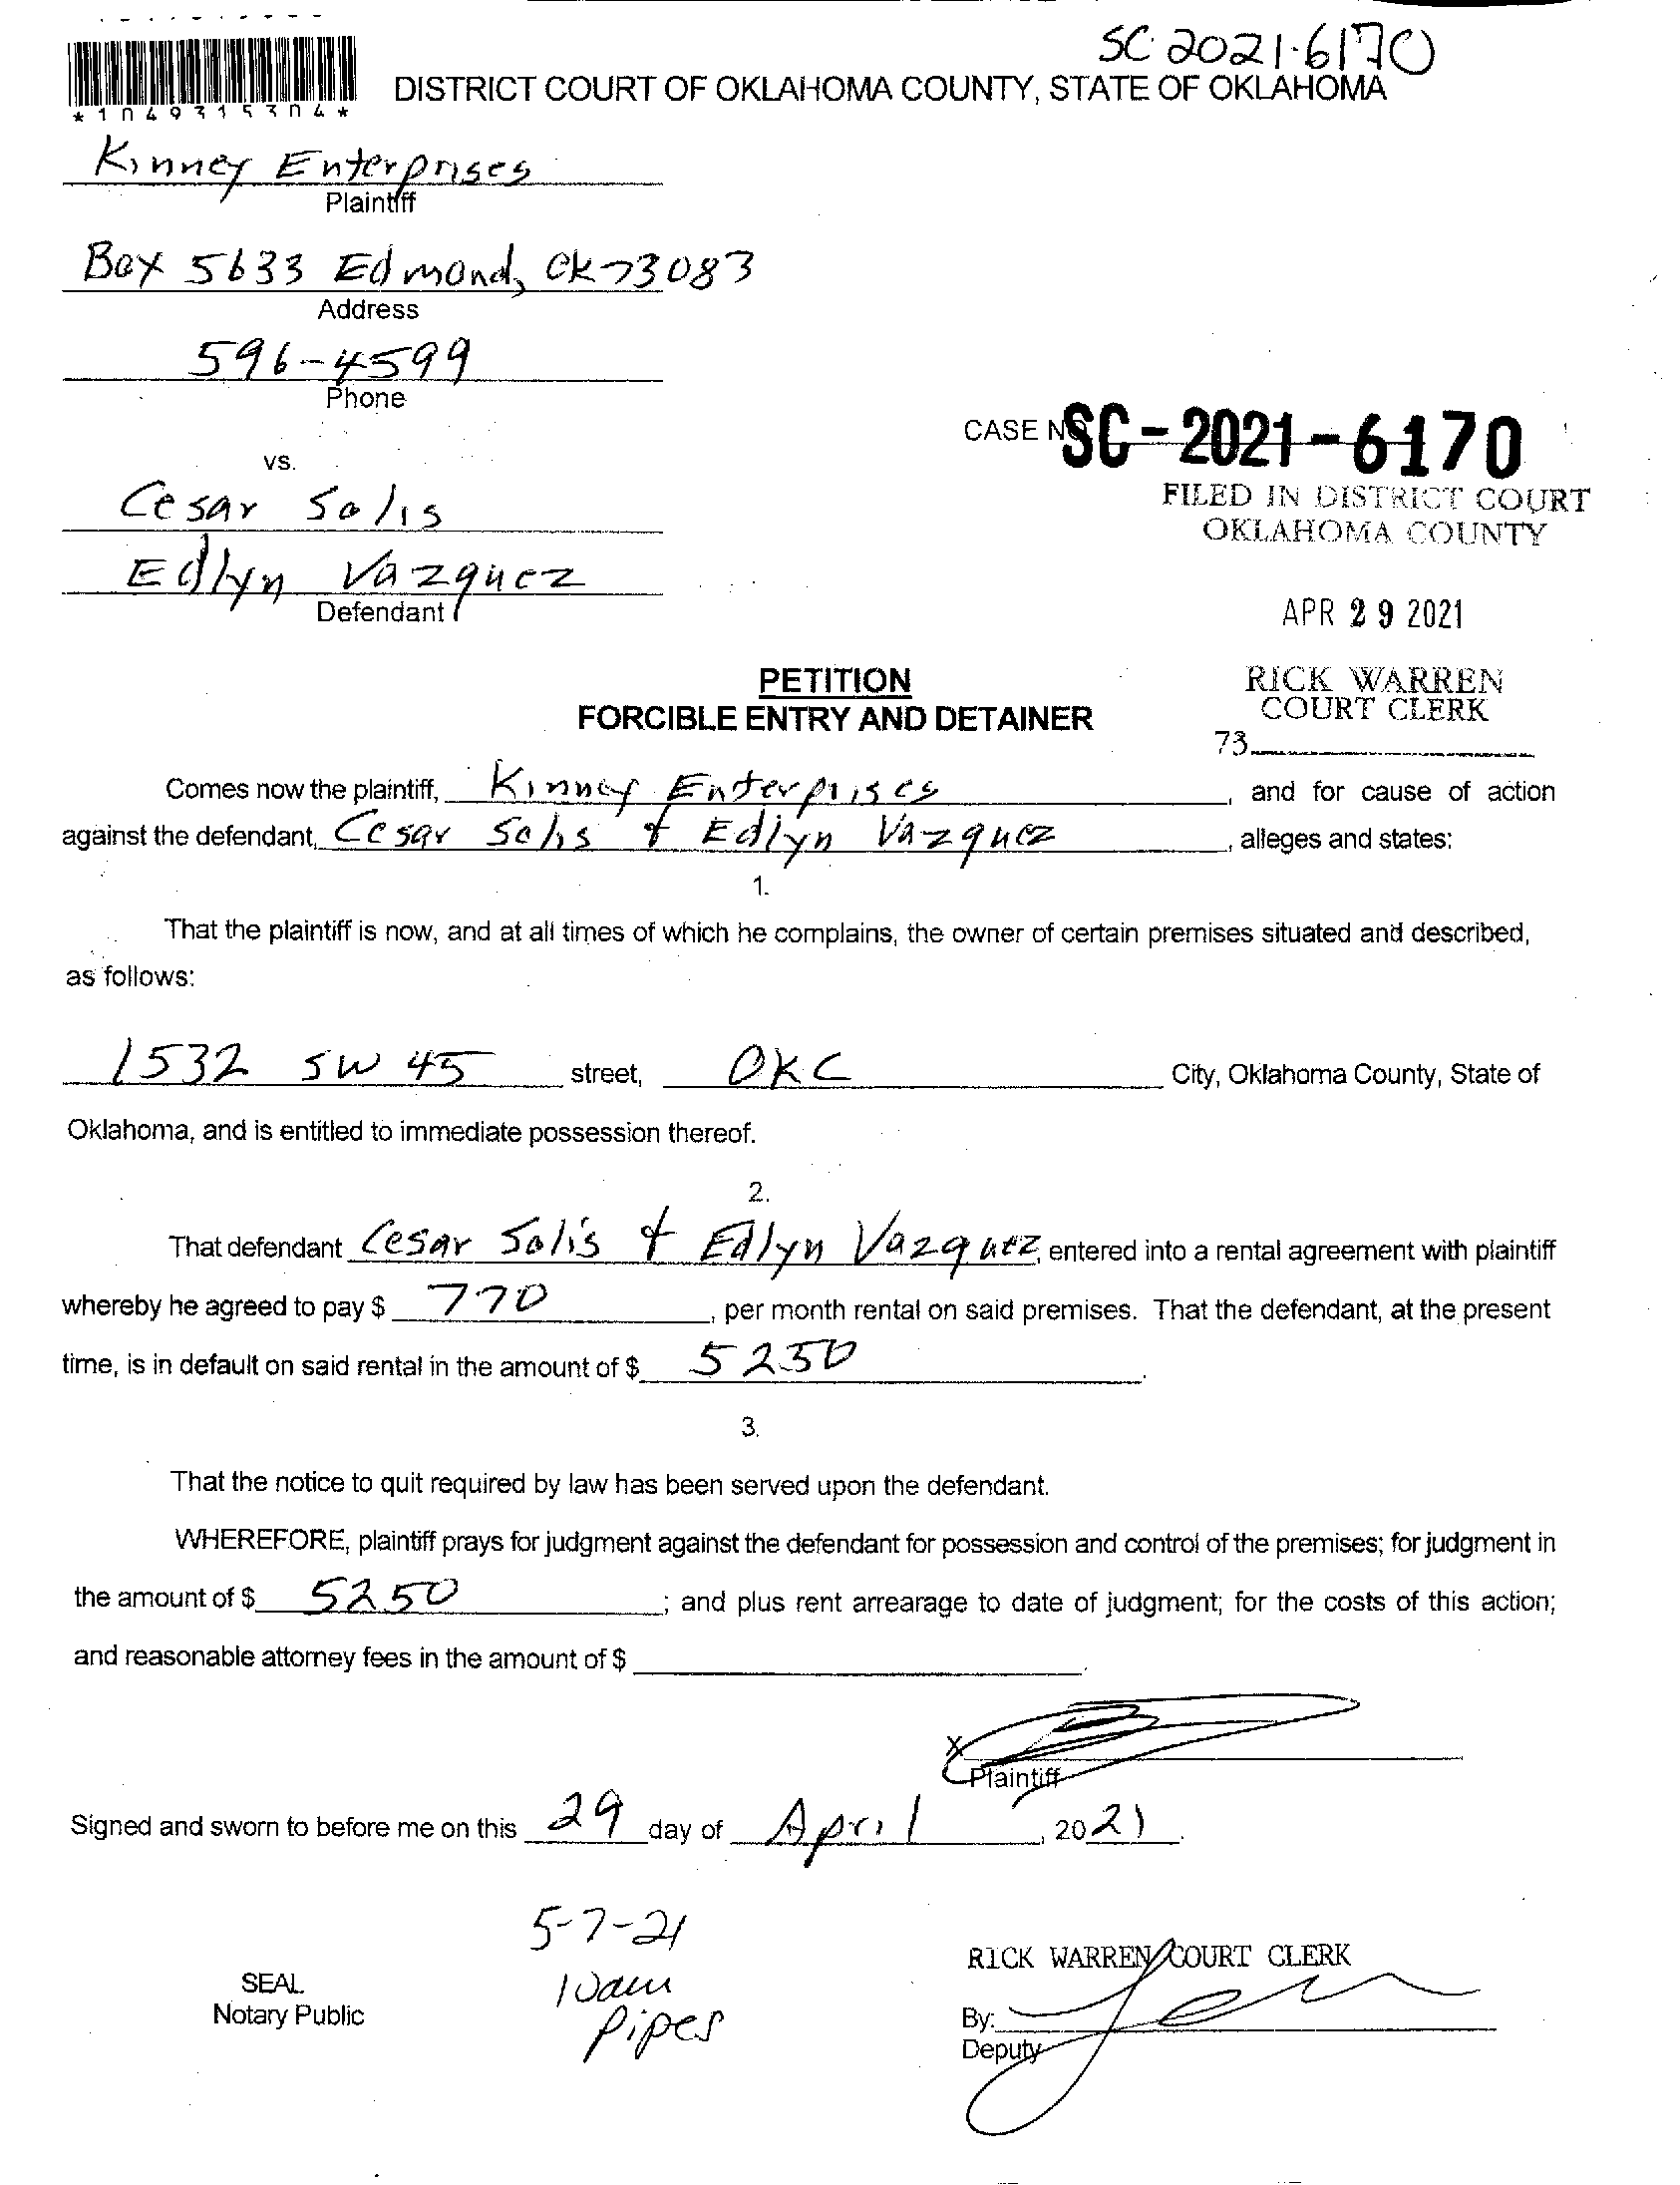 SC 2021-6170
*1049315304*
DISTRICT COURT OF OKLAHOMA COUNTY, STATE OF OKLAHOMA
Kinney Enterprises
Plaintiff
Box 5633 Edmond, OK 73083
Address
596-4599
Phone
CASE NO. SC-2021-6170
vs.
FILED IN DISTRICT COURT
OKLAHOMA COUNTY
Cesar Solis
Edlyn Vazquez
Defendant
APR 29 2021
PETITION
FORCIBLE ENTRY AND DETAINER
RICK WARREN
COURT CLERK
73
Comes now the plaintiff, Kinney Enterprises, and for cause of action
against the defendant, Cesar Solis & Edlyn Vazquez, alleges and states:
1.
That the plaintiff is now, and at all times of which he complains, the owner of certain premises situated and described,
as follows:
1532 SW 45 street, OKC City, Oklahoma County, State of
Oklahoma, and is entitled to immediate possession thereof.
2.
That defendant Cesar Solis & Edlyn Vazquez, entered into a rental agreement with plaintiff
whereby he agreed to pay $ 770, per month rental on said premises. That the defendant, at the present
time, is in default on said rental in the amount of $ 5250.
3.
That the notice to quit required by law has been served upon the defendant.
WHEREFORE, plaintiff prays for judgment against the defendant for possession and control of the premises; for judgment in
the amount of $ 5250; and plus rent arrearage to date of judgment; for the costs of this action;
and reasonable attorney fees in the amount of $
X
Plaintiff
Signed and sworn to before me on this 29 day of April, 2021.
5-7-21
10am
Pipes
SEAL
Notary Public
RICK WARREN COURT CLERK
By:
Deputy